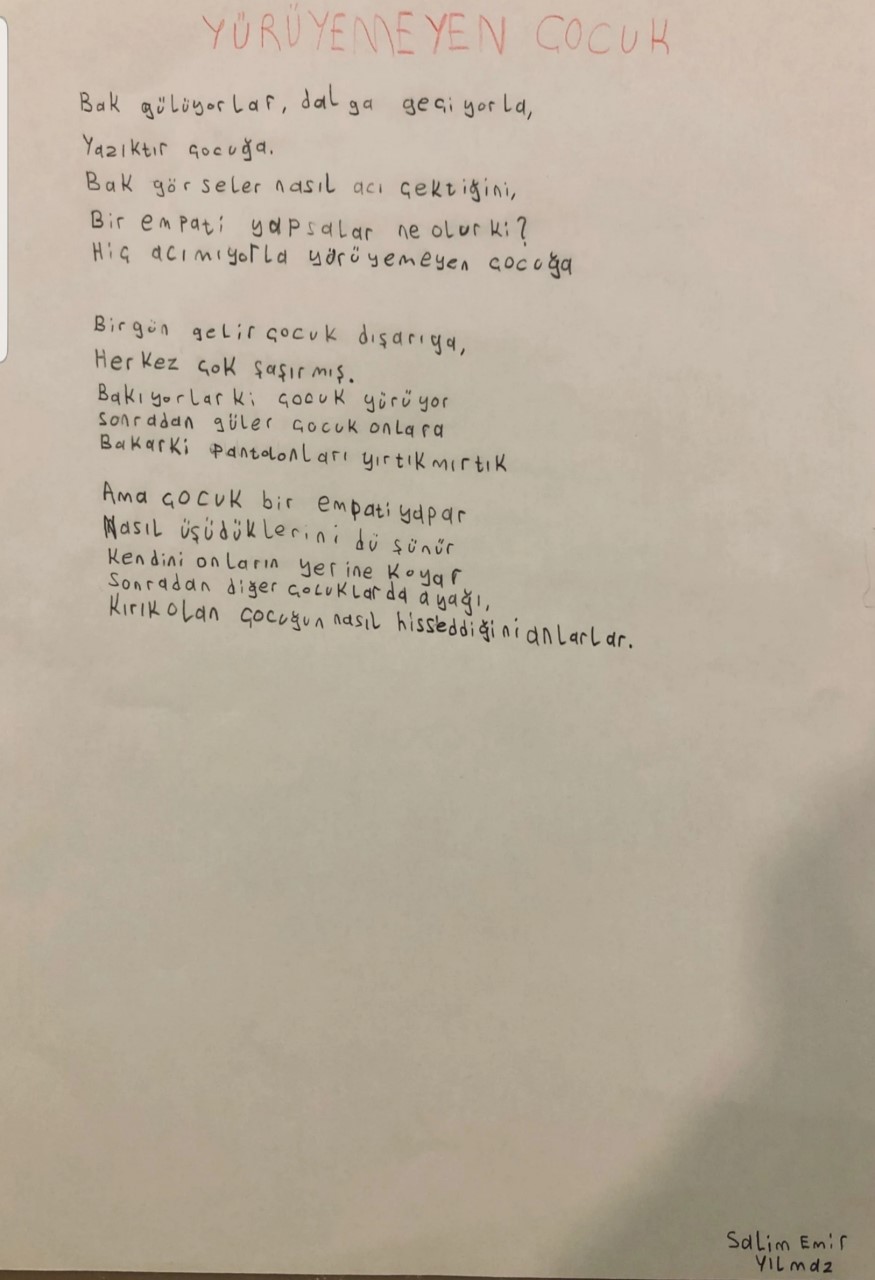 YÜRÜYEMEYEN ÇOCUK
Bak gülüyorlar, dalga geçiyorla,
Yazıktır çocuğa.
Bak görseler nasıl acı çektiğini,
Bir empati yapsalar ne olur ki?
Hiç acımıyorla yürüyemeyen çocuğa
Birgün gelir çocuk dışarıya,
Herkez çok şaşırmış.
Bakıyorlar ki çocuk yürüyor
Sonradan güler çocuk onlara
Bakarki pantolonları yırtık mırtık
Ama çocuk bir empati yapar
Nasıl üşüdüklerini düşünür
Kendini onların yerine koyar
Sonradan diğer çocuklarda ayağı,
Kırık olan çocuğun nasıl hisseddiğini anlarlar.
Salim Emir
Yılmaz